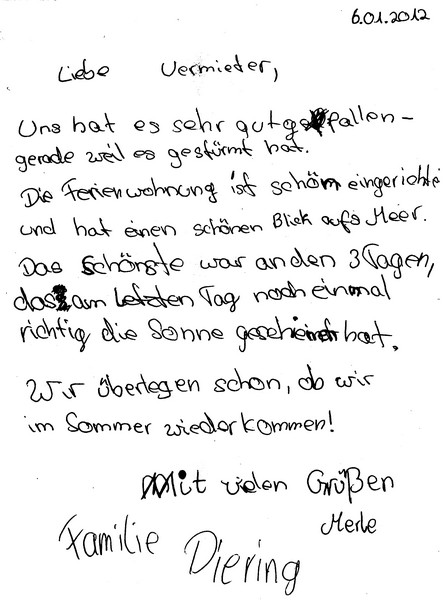 6.01.2012
Liebe Vermieter,
Uns hat es sehr gut gefallen -
gerade weil es gestürmt hat.
Die Ferienwohnung ist schön eingerichtet
und hat einen schönen Blick aufs Meer.
Das schönste war an den 3 Tagen,
das am letzten Tag noch einmal
richtig die Sonne gescheint hat.
Wir überlegen schon, ob wir
im Sommer wiederkommen!
Mit vielen Grüßen
Merle
Familie Diering